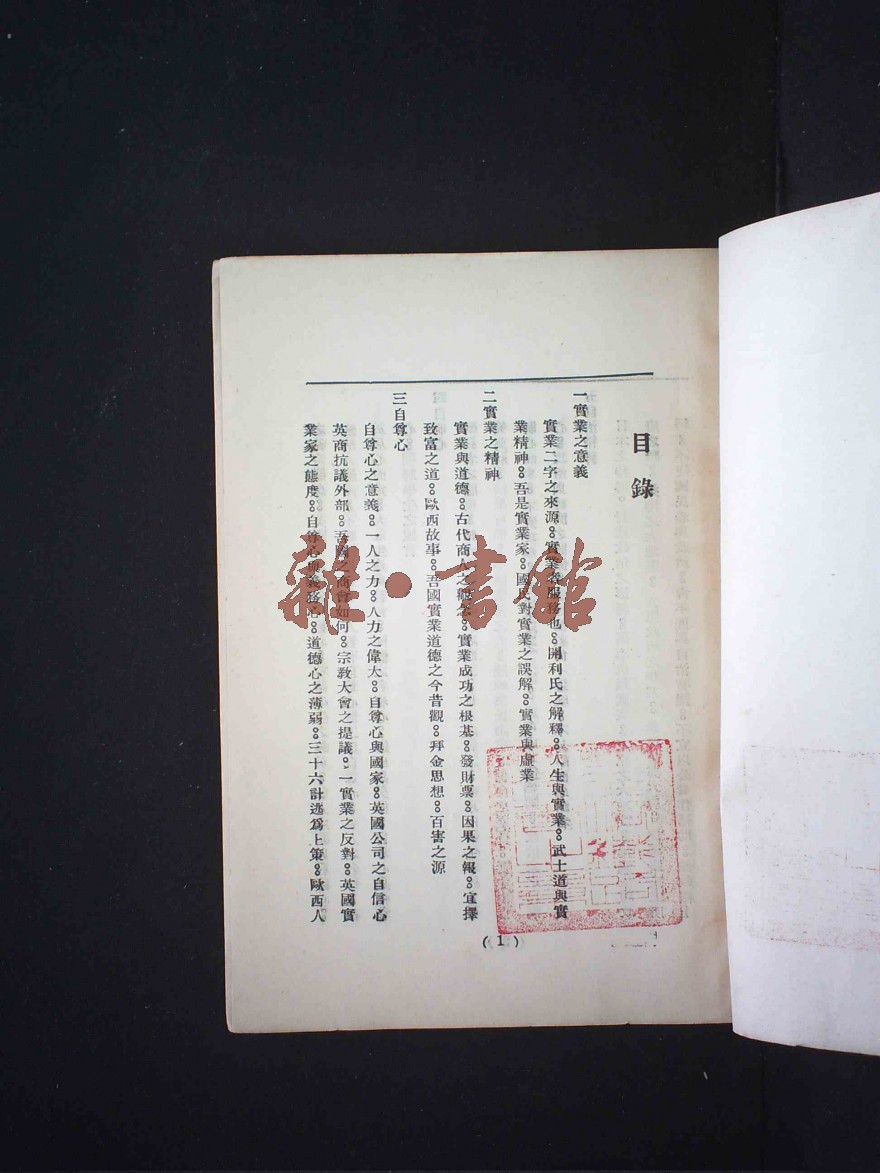 目錄
一實業之意義
實業二字之來源。。實業者服務也。。開利氏之解釋。。人生與實業。。武士道與實
業精神。。吾是實業家。。國民對實業之誤解。。實業與虛業
二實業之精神
實業與道德。。古代商人之觀念。。實業成功之根基。。發財票。。因果之報。。宜擇
致富之道。。歐西故事。。吾國實業道德之今昔觀。。拜金思想。。百害之源
三自尊心
自尊心之意義。。一人之力。。人力之偉大。。自尊心與國家。。英國公司之自信心
英商抗議外部。。吾國之商會如何。。宗教大會之提議。。一實業之反對。。英國實
業家之態度。。自尊心與義務心。。道德心之薄弱。。三十六計逃為上策。。歐西人
(1)
雜·書館